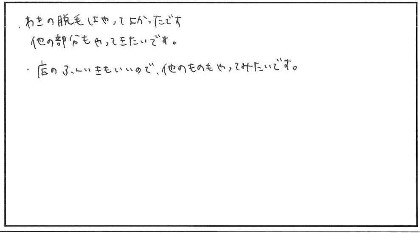 ・わきの脱毛はやってよかったです
他の部分もやってきたいです。
・店のふんいきもいいので、他のものもやってみたいです。